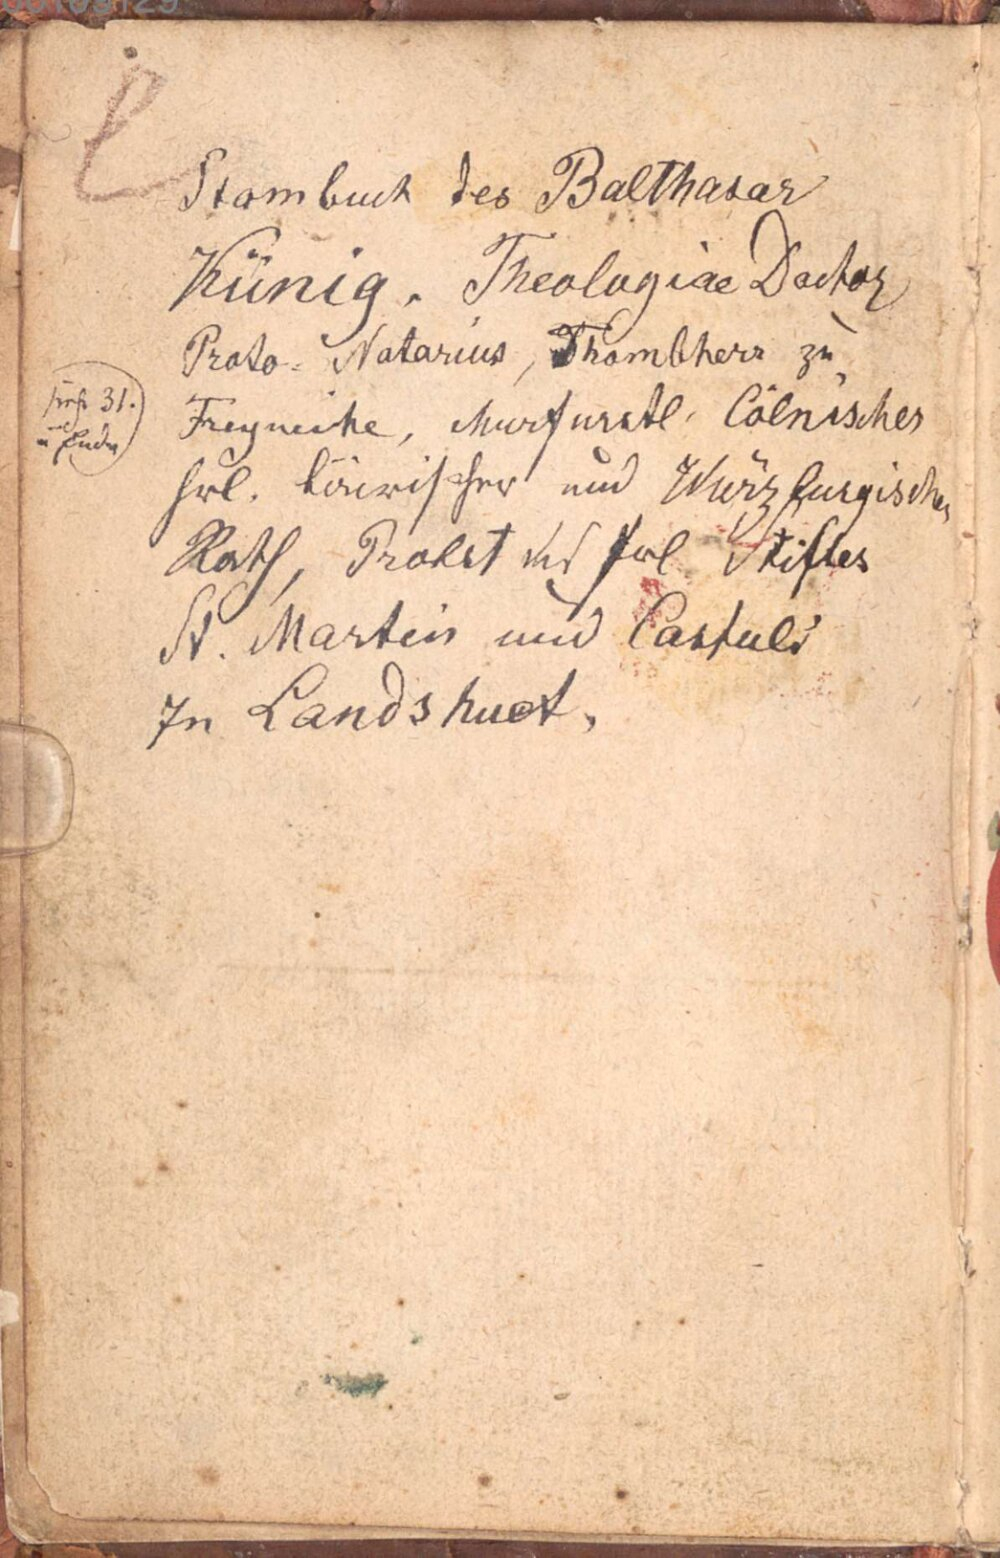 Stambuch des Balthasar
Künig. Theologiae Doctor
Proto-Notarius, Thombherr zu
Freyneihe, Churfurstl. Cölnischer
sieh 31.
und
Ende
frl. bäirischer und Würzburgischer
Rath, Probst des frl Stiftes
St. Martin und Castuli
In Landshuet.